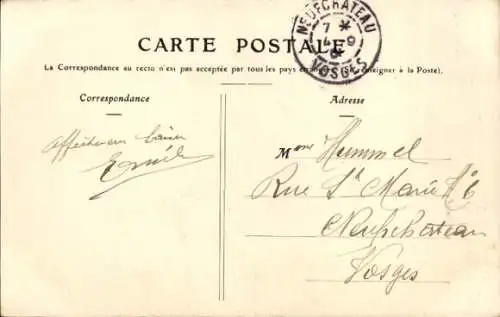 NEUFCHATEAU
7 *
4 - 9
VOSGES
CARTE POSTALE
(La Correspondance au recto n'est pas acceptée par tous les pays étrangers. (Se renseigner à la Poste).
Correspondance
Adresse
Affectueux baiser
Emile
Mme Hummel
Rue Ste Marie No 6
Neufchateau
Vosges